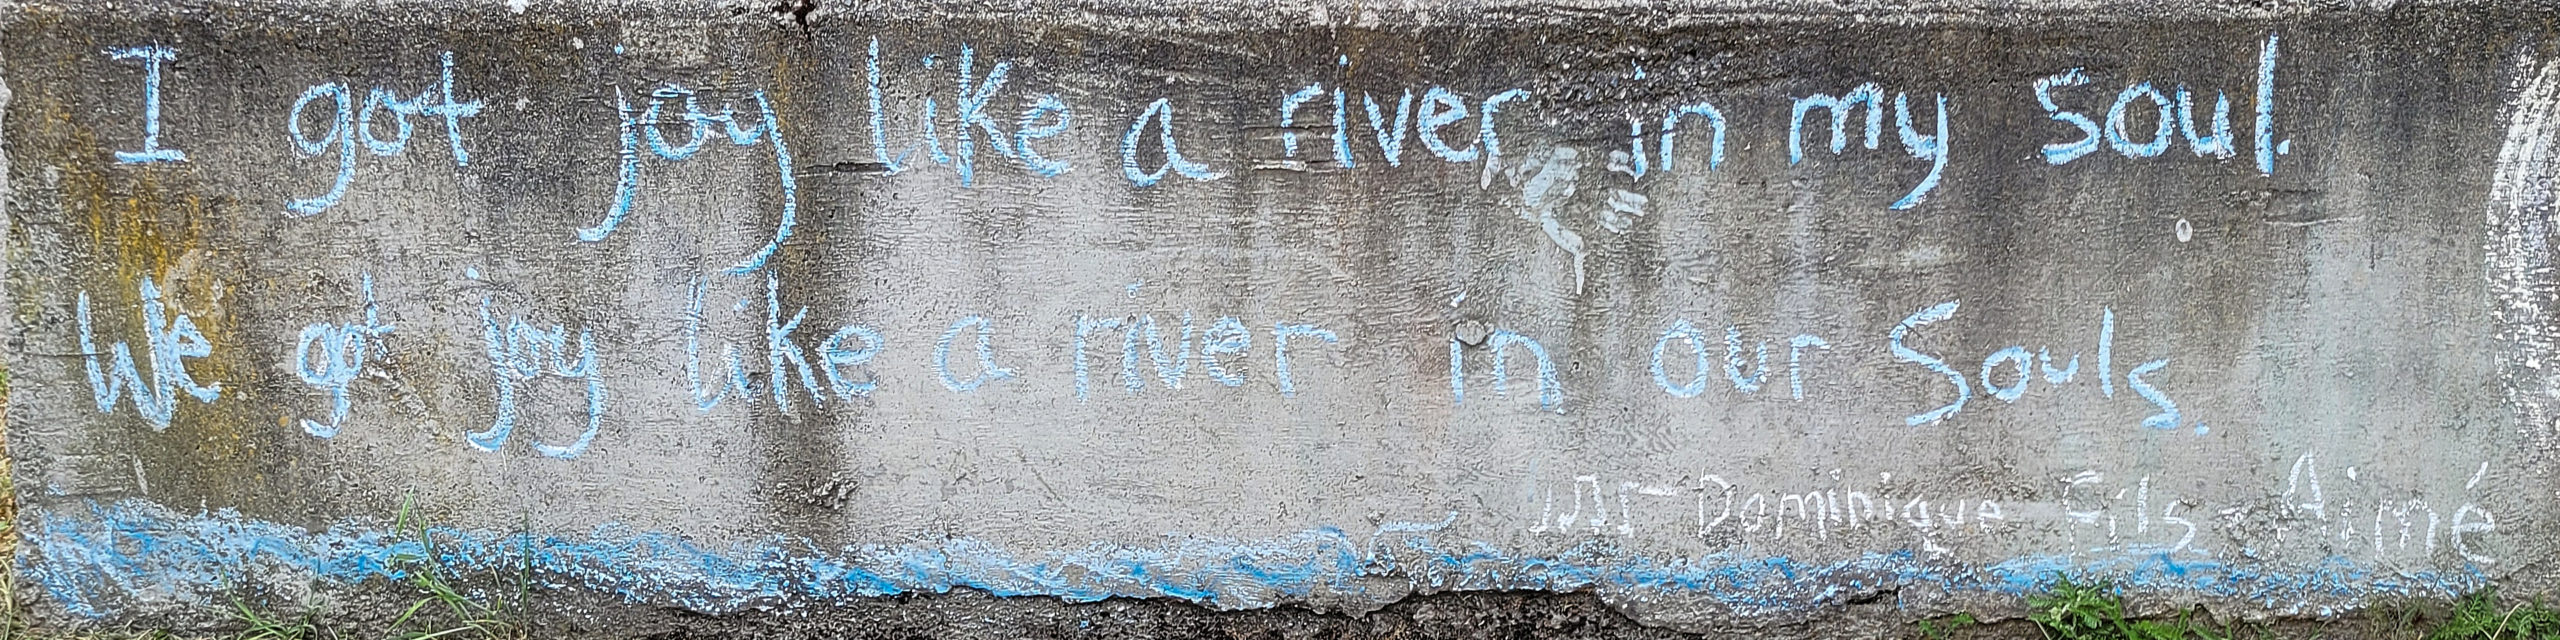 I got joy like a river in my soul.
We got joy like a river in our Souls.
Dominique Fils-Aimé